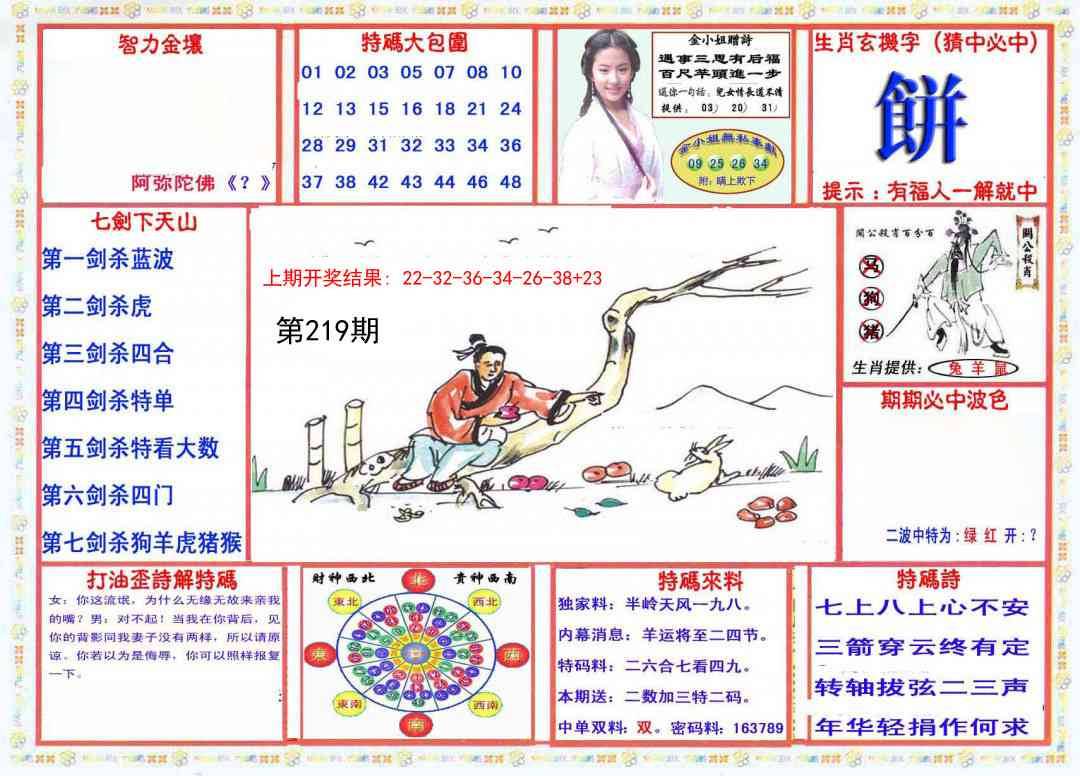 智力金壤
阿弥陀佛《？》
特碼大包圍
01 02 03 05 07 08 10
12 13 15 16 18 21 24
28 29 31 32 33 34 36
37 38 42 43 44 46 48
金小姐贈詩
遇事三思有后福
百尺竿頭進一步
送你一句話：兒女情長道不清
提供：03）20）31）
金小姐無私奉獻
09 25 26 34
附：瞒上欺下
生肖玄機字（猜中必中）
餅
提示：有福人一解就中
七劍下天山
第一剑杀蓝波
第二剑杀虎
第三剑杀四合
第四剑杀特单
第五剑杀特看大数
第六剑杀四门
第七剑杀狗羊虎猪猴
上期开奖结果：22-32-36-34-26-38+23
第219期
関公殺肖百分百
關公殺肖
马
狗
猪
生肖提供：兔 羊 鼠
期期必中波色
二波中特为：绿 红 开：？
打油歪詩解特碼
女：你这流氓，为什么无缘无故来亲我
的嘴？男：对不起！当我在你背后，见
你的背影同我妻子没有两样，所以请原
谅。你若以为是侮辱，你可以照样报复
一下。
财神西北
貴神西南
北
東北
西北
東
西
東南
西南
南
特碼來料
独家料：半岭天风一九八。
内幕消息：羊运将至二四节。
特码料：二六合七看四九。
本期送：二数加三特二码。
中单双料：双。密码料：163789
特碼詩
七上八上心不安
三箭穿云终有定
转轴拔弦二三声
年华轻捐作何求